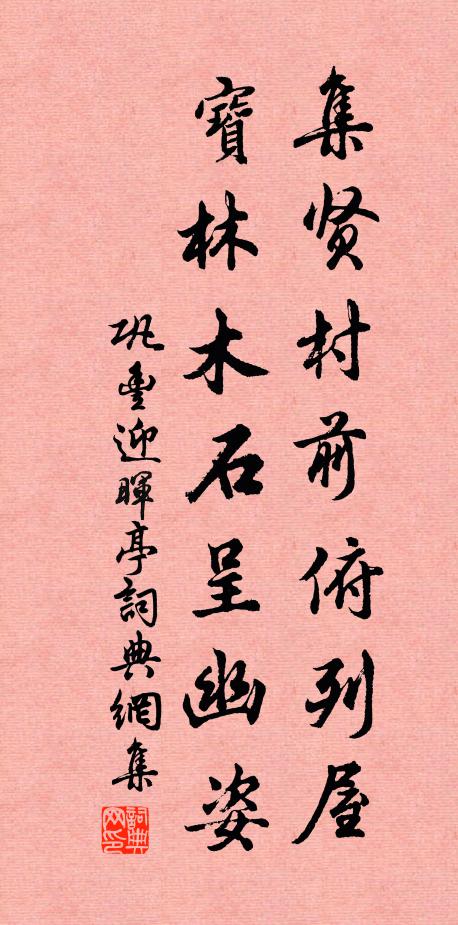 集贤村前俯列屋
寶林木石呈幽姿
巩豊迎暉亭詞典網集
詞典網印